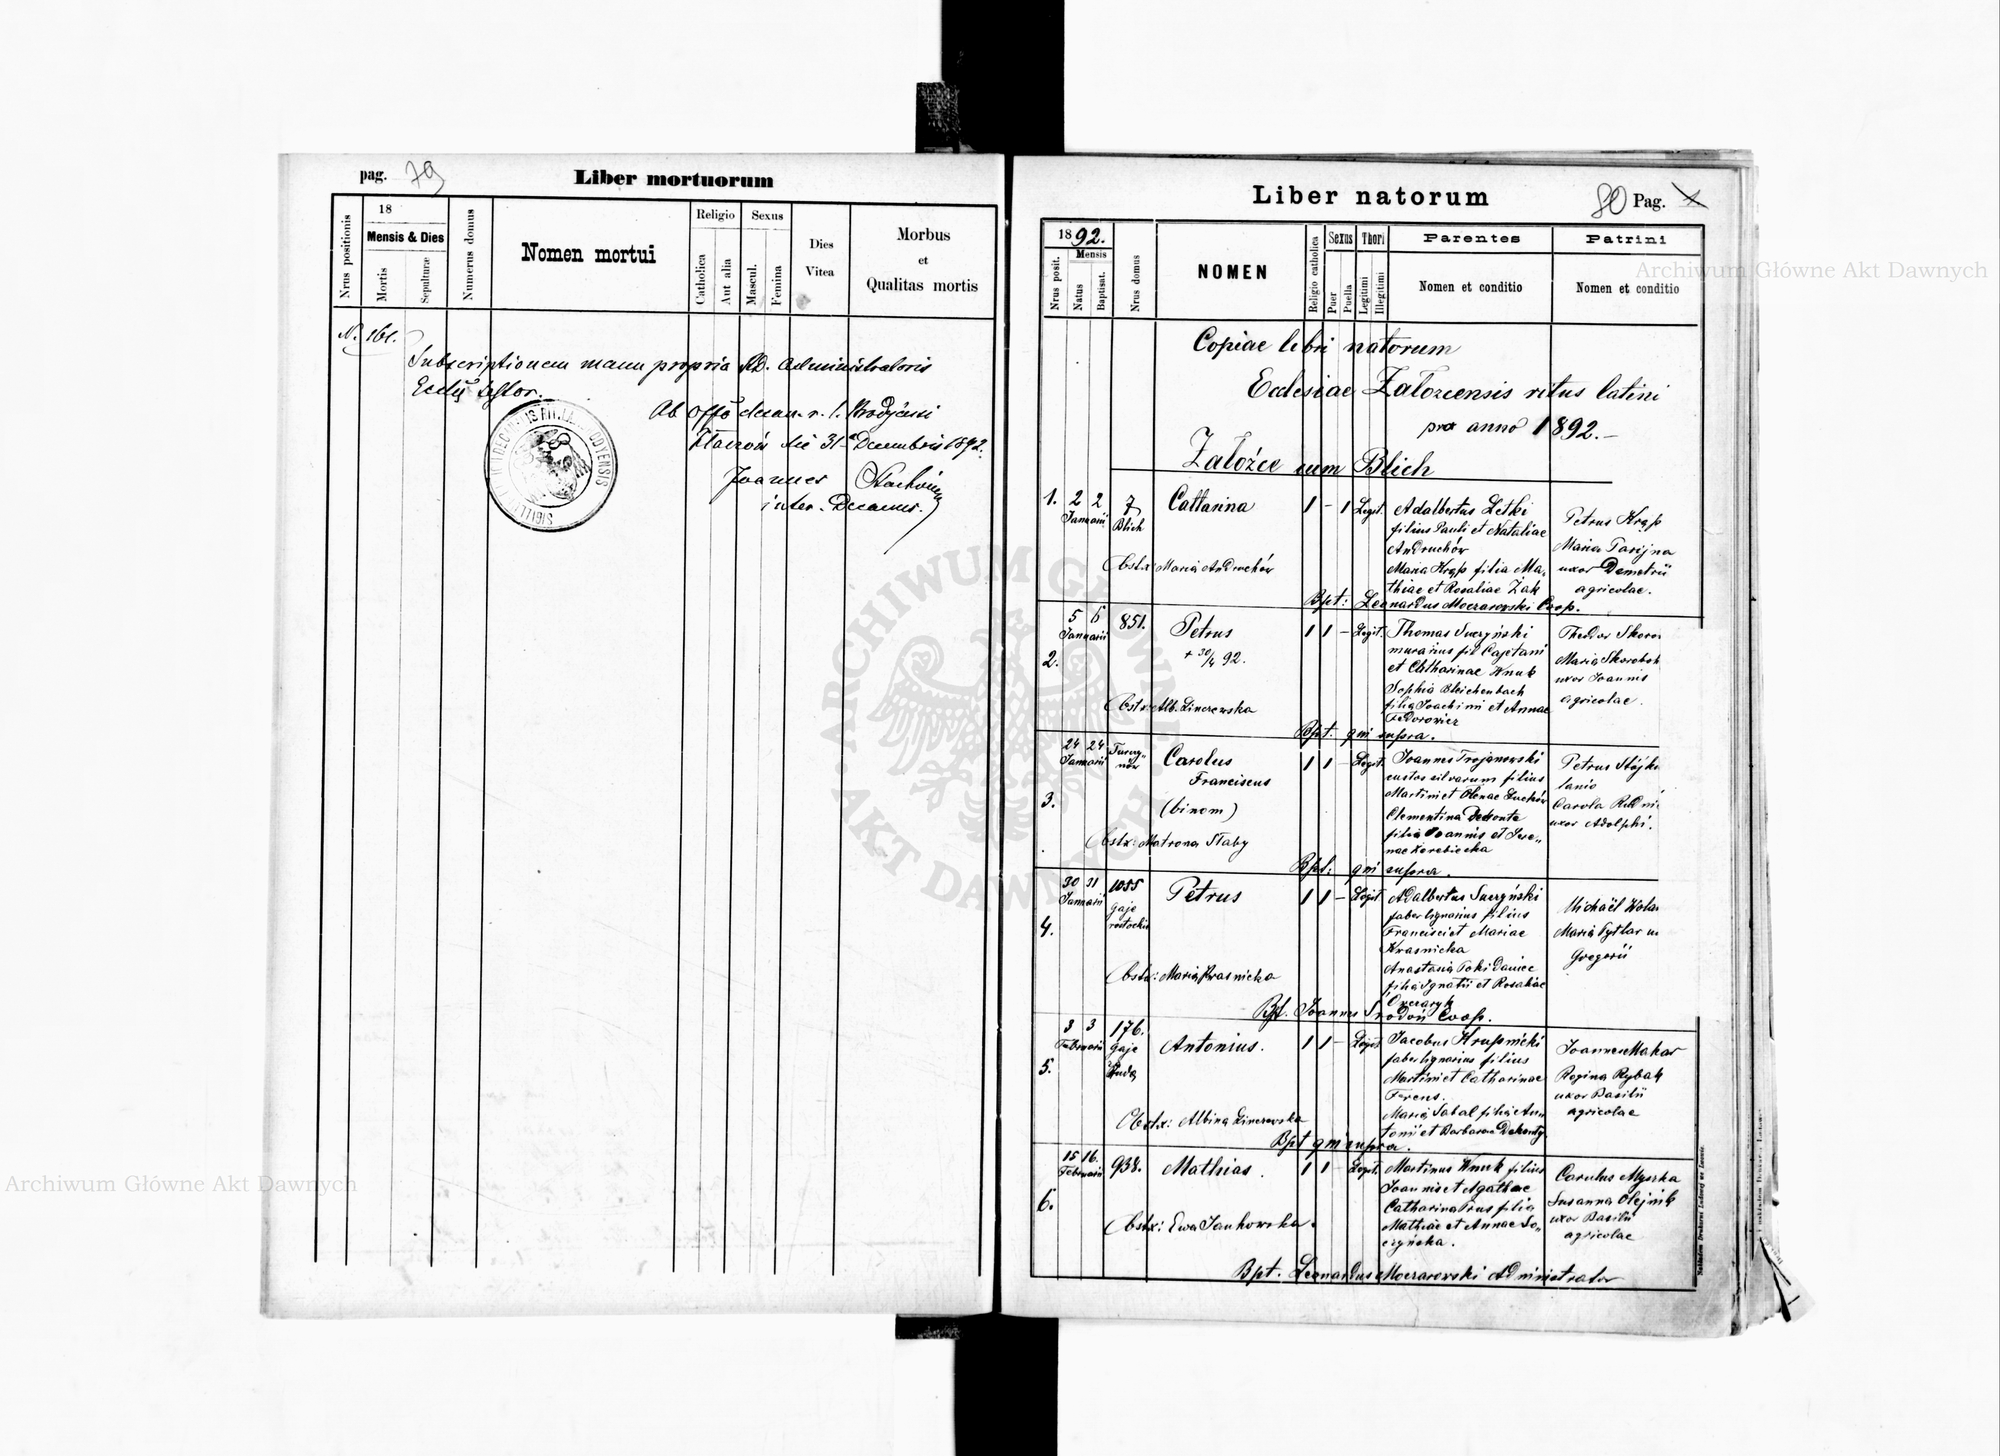 pag. 79
Liber mortuorum
Nrus positionis
18
Mensis & Dies
Mortis
Sepulturæ
Numerus domus
Nomen mortui
Religio
Catholica
Aut alia
Sexus
Mascul.
Femina
Dies
Vitea
Morbus
et
Qualitas mortis
N. 161.
Subscriptionem manu propria AD. administratoris
Ab offo decan. r. l. Brodycensi
die 31 Decembris 1892.
Joannes
inter. Decanus.
Liber natorum
80 Pag. 1
1892.
Mensis
Nrus posit.
Natus
Baptisat.
Nrus domus
NOMEN
Religio catholica
Sexus
Puer
Puella
Thori
Legitimi
Illegitimi
Parentes
Nomen et conditio
Patrini
Nomen et conditio
Copiae libri natorum
Ecclesiae Załozcensis ritus latini
pro anno 1892.-
Załoźce cum Blich
1. 2 2 Januarii 7 Blich Catharina 1 - 1 Legit.
Adalbertus Letki
filius Pauli et Nataliae
Andruchów
Maria Kręp filia Ma-
thiae et Rosaliae Żak
Petrus Kręp
Maria Tarcyna
uxor Demetrii
agricolae.
Obstx: Maria Andruchów
Bpt: Leonardus Moczarowski Coop.
2. 5 6 Januarii 851. Petrus 1 1 - Legit.
+ 30/4 92.
Thomas Suczyński
murarius fil Cajetani
et Catharinae Wnuk
Sophia Bleichenbach
filia Joachimi et Annae
Fedorowicz
Theodor Skoro
Maria Skoroboh
uxor Joannis
agricolae.
Obstx: Alb. Linczewska
Bpt. qui supra.
3. 24 24 Januarii Carolus 1 1 - Legit.
Franciscus
(binom)
Joannes Trojanowski
custos silvarum filius
Martini et Olenae Luchów
Clementina Dekonte
filia Joannis et Ire-
nae Korebiecka
Petrus Stójko
lanio
Carola Rudni
uxor Adolphi.
Obstx: Matrona Słaby
Bpt: qui supra.
4. 30 31 Januarii 1055 Gaje roztockie Petrus 1 1 - Legit
Adalbertus Suczyński
faber lignarius filius
Francisci et Mariae
Krasnicka
Anastasia Tokidaniec
filia Ignatii et Rosaliae
Owczaryk
Michaël Wola
Maria Tytlar u
Gregorii
Obstx: Maria Krasnicka
Bpt. Joannes Srodoń Coop.
5. 3 3 Februarii 176. Gaje Ruda Antonius. 1 1 - Legit
Jacobus Krupnicki
faber lignarius filius
Martini et Catharinae
Ferens.
Maria Sabal filia An-
tonii et Barbarae Dekonty
Joannes Makar
Regina Rybak
uxor Basilii
agricolae
Obstx: Albina Linczewska
Bpt qui supra.
6. 15 16. Februarii 938. Mathias. 1 1 - Legit.
Martinus Wnuk filius
Joannis et Agathae
Catharina Prus filia
Mathiae et Annae Su-
czyńska.
Carolus Myszka
Susanna Olejnik
uxor Basilii
agricolae
Obstx: Ewa Jankowska.
Bpt. Leonardus Moczarowski Administrator
Nakładem Drukarni Ludowej we Lwowie.
Archiwum Główne Akt Dawnych
Archiwum Główne Akt Dawnych
ARCHIWUM GŁÓWNE AKT DAWNYCH